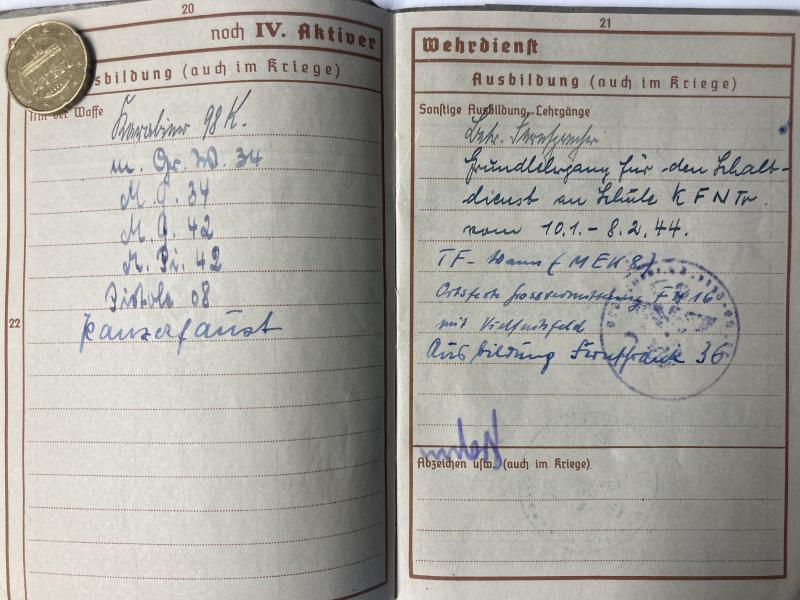 20
noch IV. Aktiver
sbildung (auch im Kriege)
der Waffe
Karabiner 98 K.
m. Gr. W. 34
M. G. 34
M. G. 42
M. Pi. 42
Pistole 08
Panzerfaust
22
21
Wehrdienst
Ausbildung (auch im Kriege)
Sonstige Ausbildung, Lehrgänge
Fernsprecher
Grundlehrgang für den Schalt-
dienst an Schule K F N Tr.
vom 10.1. - 8.2.44.
TF- (MEK 8)
Ortsfeste Grossvermittlung FH 16
mit Vielfachfeld
Ausbildung Fernschrank 36
Abzeichen usw. (auch im Kriege)